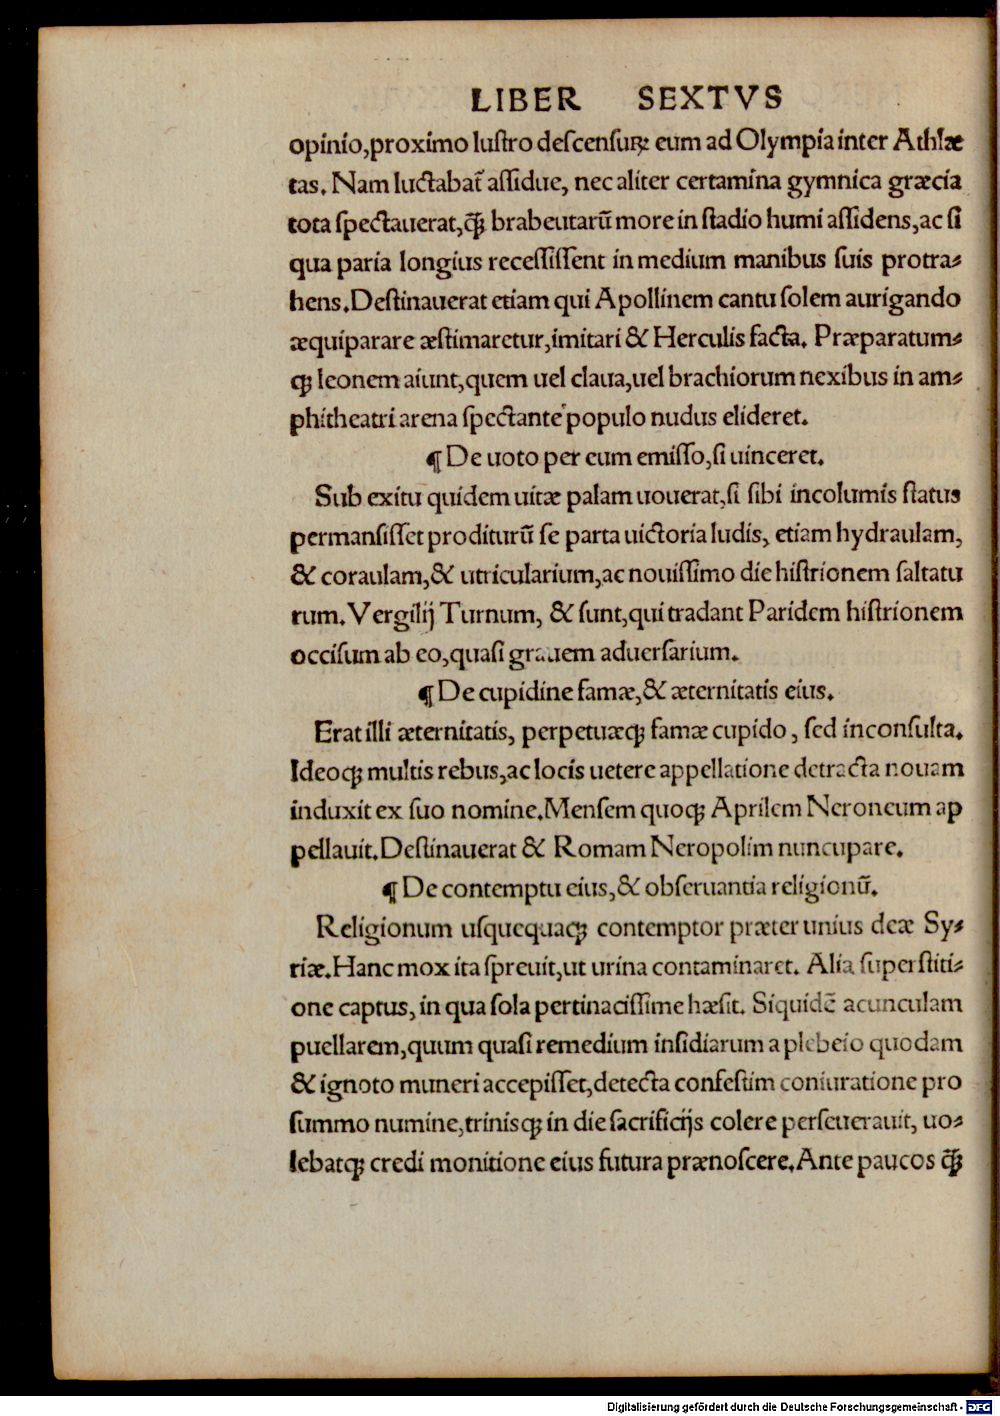 LIBER SEXTVS
opinio,proximo lustro descensuꝝ eum ad Olympia inter Athlæ
tas. Nam luctabat᷑ assidue, nec aliter certamina gymnica græcia
tota spectauerat,q̃ꝫ brabeutarũ more in stadio humi assidens,ac si
qua paria longius recessissent in medium manibus suis protra⸗
hens.Destinauerat etiam qui Apollinem cantu solem aurigando
æquiparare æstimaretur,imitari & Herculis facta. Præparatum⸗
qꝫ leonem aiunt,quem uel claua,uel brachiorum nexibus in am⸗
phitheatri arena spectante populo nudus elideret.
¶De uoto per eum emisso,si uinceret.
Sub exitu quidem uitæ palam uouerat,si sibi incolumis status
permansisset proditurũ se parta uictoria ludis, etiam hydraulam,
& coraulam,& utricularium,ac nouissimo die histrionem saltatu
rum.Vergilij Turnum, & sunt,qui tradant Paridem histrionem
occisum ab eo,quasi grauem aduersarium.
¶De cupidine famæ,& æternitatis eius.
Erat illi æternitatis, perpetuæqꝫ famæ cupido, sed inconsulta.
Ideoqꝫ multis rebus,ac locis uetere appellatione detracta nouam
induxit ex suo nomine.Mensem quoqꝫ Aprilem Neroneum ap
pellauit.Destinauerat & Romam Neropolim nuncupare.
¶De contemptu eius,& obseruantia religionũ.
Religionum usquequaqꝫ contemptor præter unius deæ Sy⸗
riæ.Hanc mox ita spreuit,ut urina contaminaret. Alia superstiti⸗
one captus, in qua sola pertinacissime hæsit. Siquidẽ acunculam
puellarem,quum quasi remedium insidiarum a plebeio quodam
& ignoto muneri accepisset,detecta confestim coniuratione pro
summo numine,trinisqꝫ in die sacrificijs colere perseuerauit, uo⸗
lebatqꝫ credi monitione eius futura prænoscere.Ante paucos q̃ꝫ
Digitalisierung gefördert durch die Deutsche Forschungsgemeinschaft - DFG